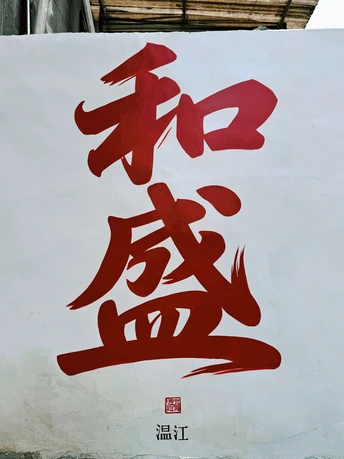 和
盛
温江